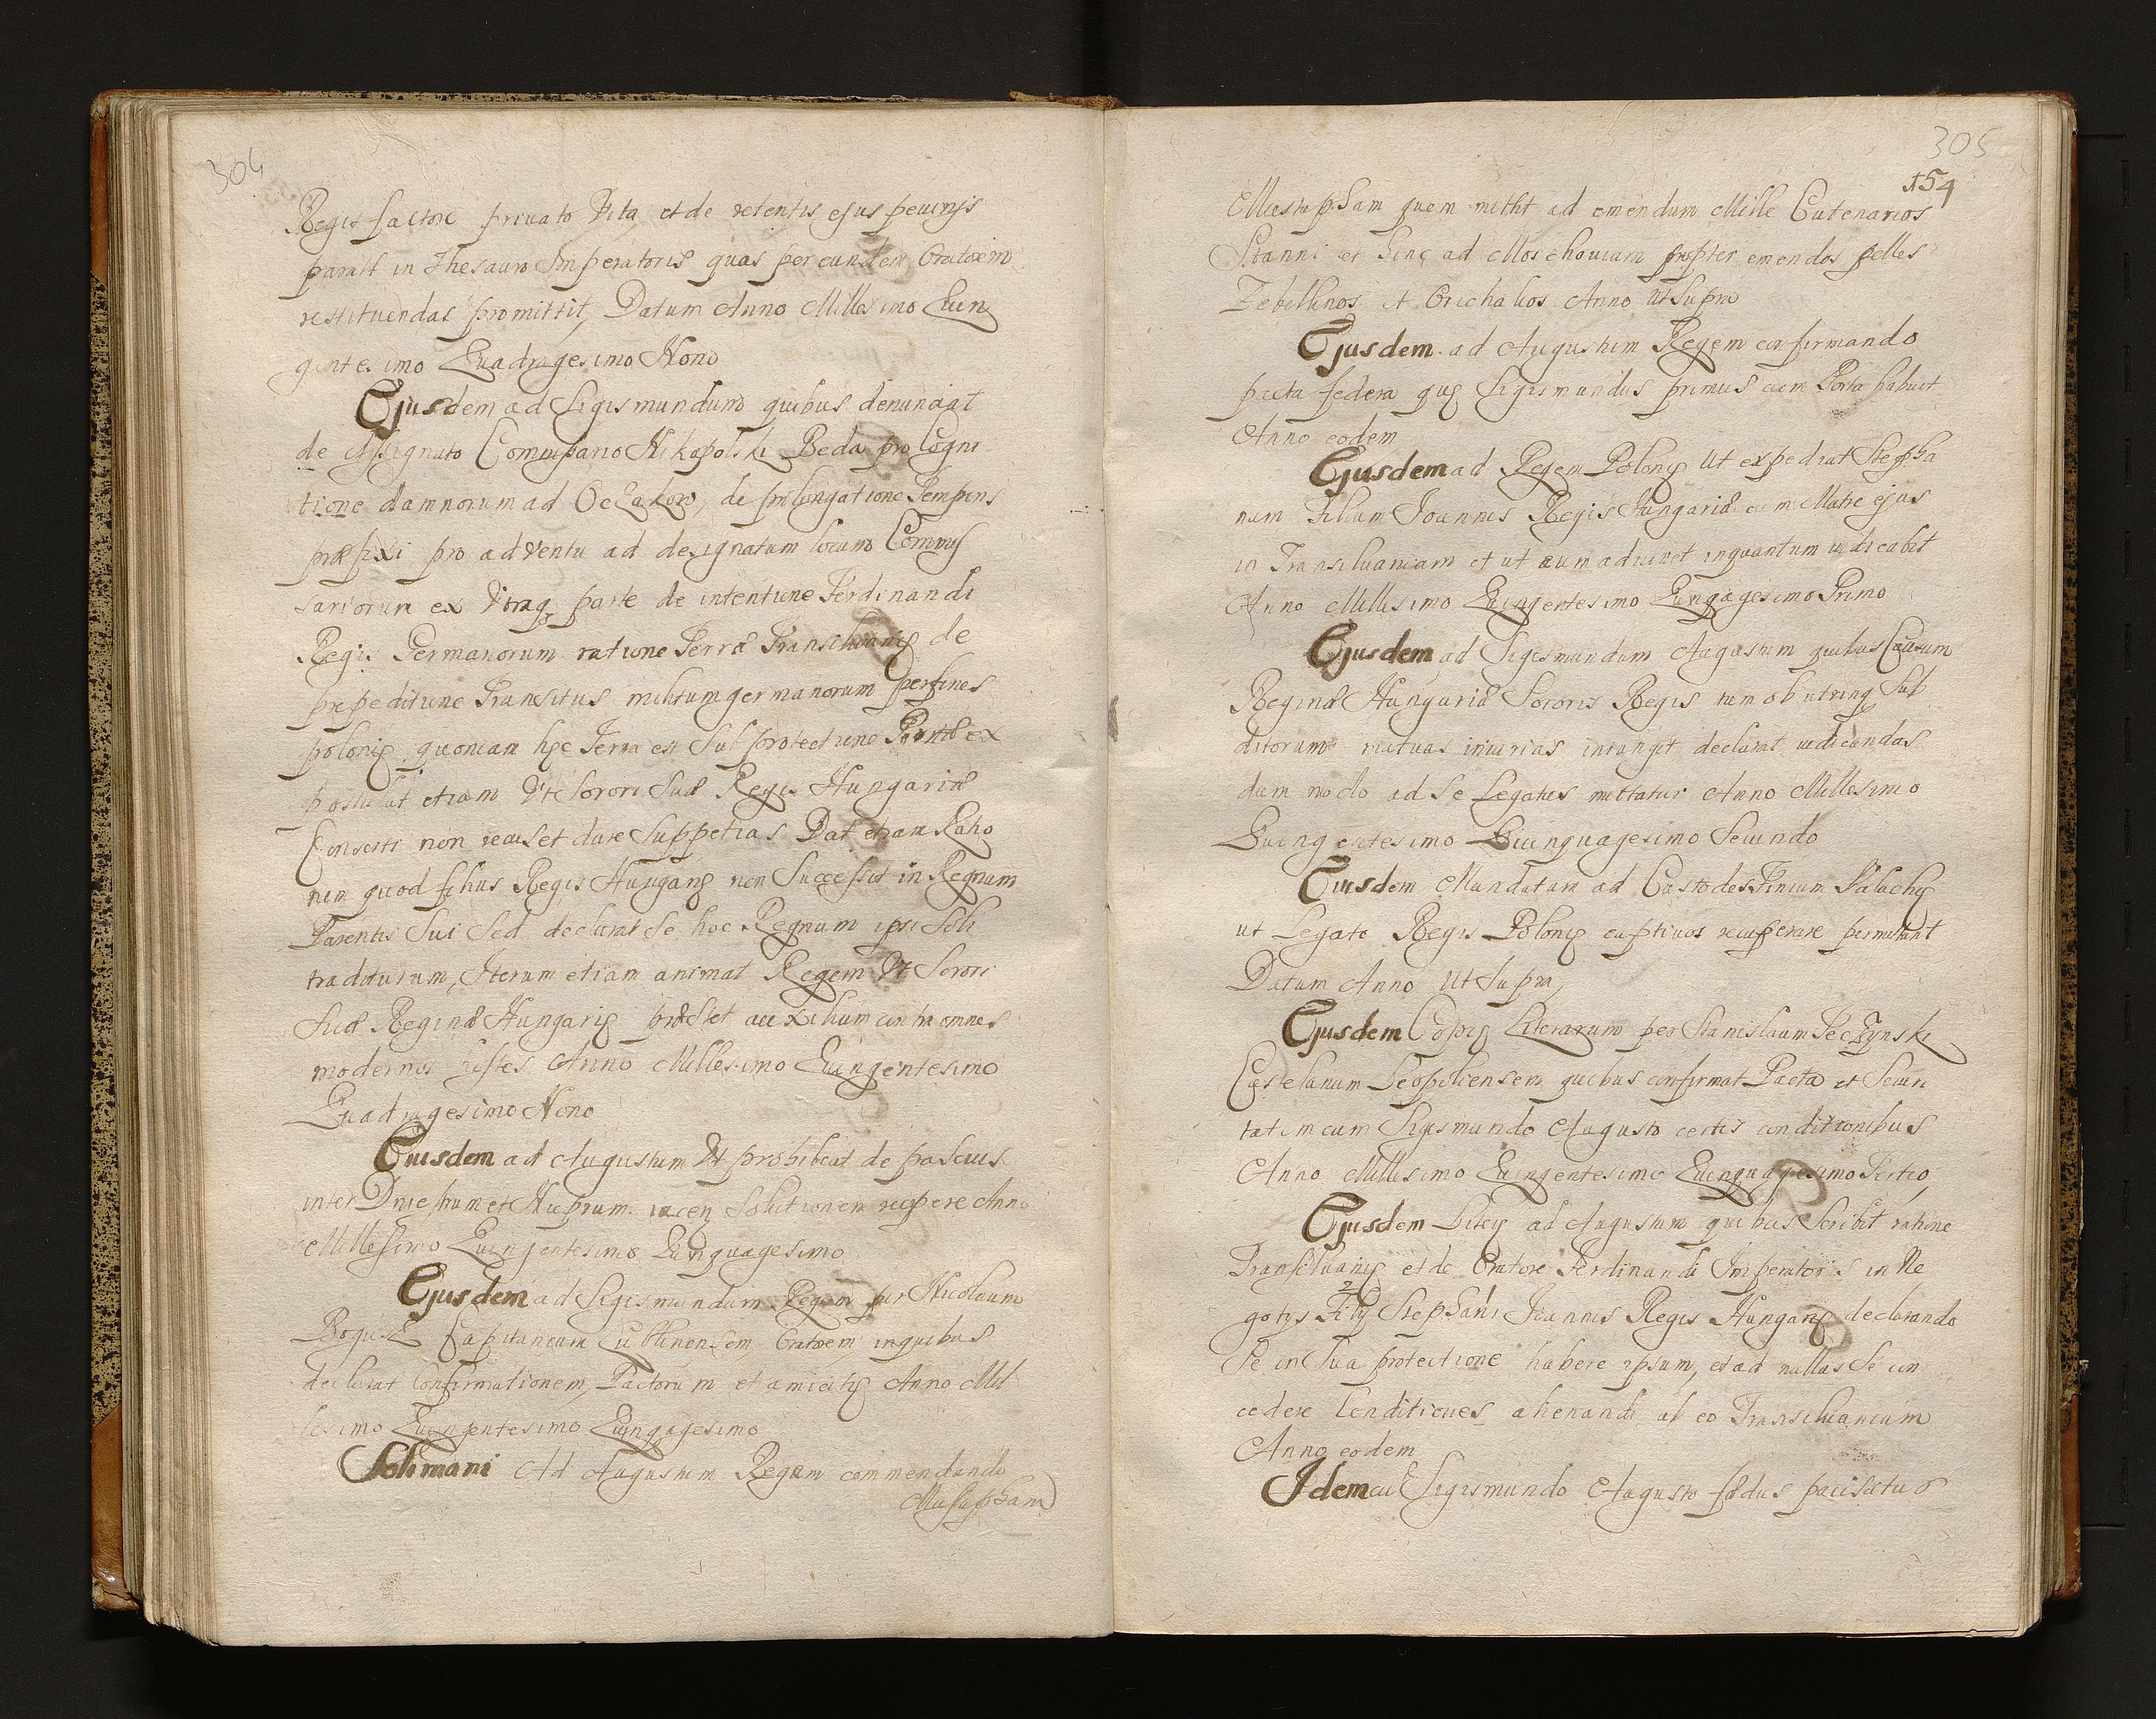 304
Regis factore privato Vita et de retentis ejus pecunijs
paratt in Thesauro Imperatoris quas per eundem Oratorem
restituendas promittit, Datum Anno Millesimo Quin
gentesimo Quadragesimo Nono
Ejusdem ad Sigismundum quibus denunciat
de assignato Commissario Nikapolski Beda pro Cogni
tione damnorum ad Oczakow, de prolongatione Temporis
præfixi pro adventu ad designatum locum Commis
sariorum ex Vtraq parte de intentione Ferdinandi
Regis Germanorum ratione Terræ Transilvanię de
prepeditione Transitus militum germanorum per fines
polonię quoniam hęc Terra est sub protectione Portæ ex
postulat etiam Vt Sorori Suæ Regis Hungariæ
Consorti non recuset dare Suppetias Dat etiam Ratio
nem quod filius Regis Hungarię non Successit in Regnum
Parentis Sui Sed declarat Se hoc Regnum ipsi Soli
traditurum, Iterum etiam animat Regem Vt Sorori
Suæ Reginæ Hungarię præstet auxilium contra omnes
modernos hostes Anno Millesimo Quingentesimo
Quadragesimo Nono
Eiusdem ad Augustum Vt prohibeat de pascuis
inter Dniestrum et Nieprum iacen Solutionem recipere Anno
Millesimo Quingentesimo Quinquagesimo
Ejusdem ad Sigismundum Regem per Nicolaum
Bogusz Capitaneum Lublinensem, Oratorem in quibus
declarat Confirmationem Pactorum et amicitię Anno Mil
lesimo Quingentesimo Quinqagesimo
Solimani Ad Augustum Regem commendando
Mustapham
305
154
Mustapham quem mittit ad emendum Mille Centenarios
Stanni et hinc ad Moschouiam propter emendos pelles
Zebellinos et Orichalios Anno Ut Supra
Ejusdem ad Augustum Regem confirmando
pacta federa quę Sigismundus primus cum Porta habuit
Anno eodem
Ejusdem ad Regem Polonię Ut expediat Stepha
num Filium Joannis Regis Hungariæ cum Matre ejus
in Transilvaniam et ut eum adiuvet inquantum indicabit
Anno Millesimo Quingentesimo Quinqagesimo Primo
Ejusdem ad Sigismundum Augustum quibus Causam
Reginæ Hungariæ Sororis Regis tum ob utrinq Sub
ditorum mutuas iniurias intangit declarat iudicandas
dum modo ad Se Legatus mittatur Anno Millesimo
Quingentesimo Quinquagesimo Secundo
Eiusdem Mandatum ad Custodes Finium Valachię
ut Legato Regis Polonię captivos recuperare permittant
Datum Anno Ut Supra,
Ejusdem Copię Literarum per Stanislaum Tęczynski
Castelanum Leopoliensem quibus confirmat Pacta et Secu
tatem cum Sigismundo Augusto certis conditionibus
Anno Millesimo Quingentesimo Quinquagesimo Tertio,
Ejusdem Litę ad Augustum quibus Scribit ratione
Transilvanię et de Oratore Ferdinandi Imperatoris in Ne
gotys Filÿ Stephani Joannis Regis Hungarię declarando
Se in Sua protectione habere ipsum, et ad nullas Se con
cedere Conditiones alienandi ab eo Transilvaniam
Anno eodem
Idem cu Sigismundo Augusto fœdus paciscitur